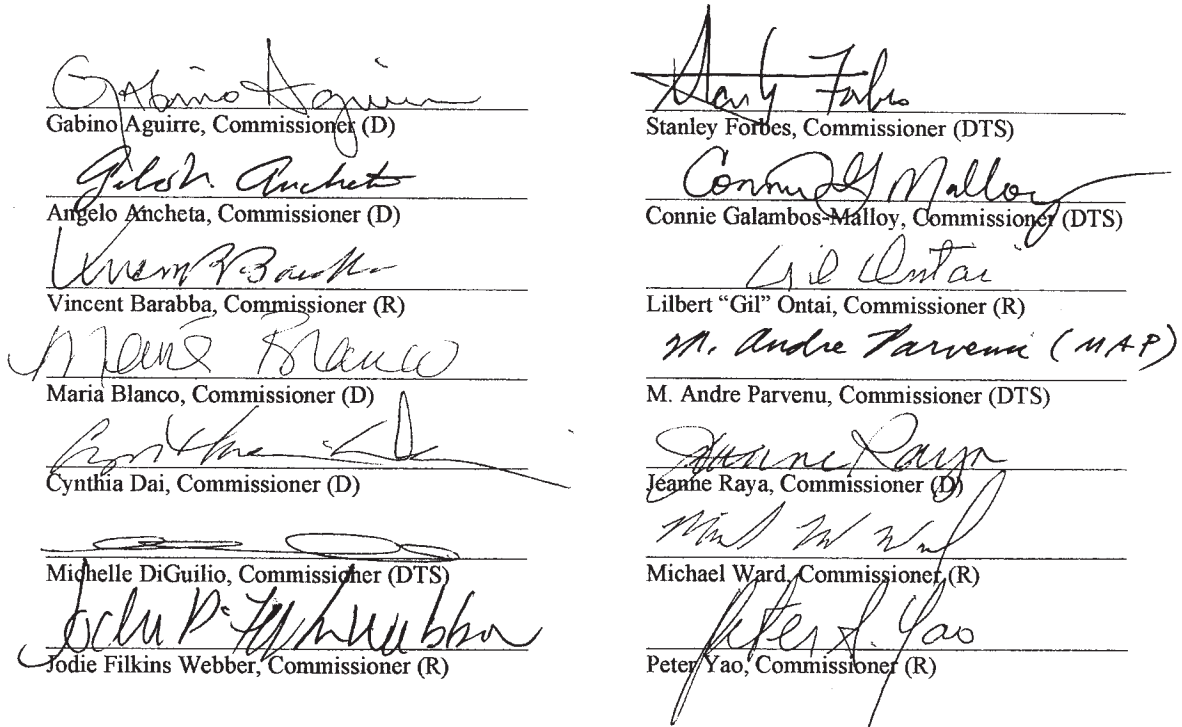 Gabino Aguirre
Gabino Aguirre, Commissioner (D)
Angelo Ancheta, Commissioner (D)
Vincent Barabba, Commissioner (R)
Maria Blanco
Maria Blanco, Commissioner (D)
Cynthia Dai, Commissioner (D)
Michelle DiGuilio, Commissioner (DTS)
Jodie Filkins Webber, Commissioner (R)
Forbes
Stanley Forbes, Commissioner (DTS)
Connie G Malloy
Connie Galambos-Malloy, Commissioner (DTS)
Gil Ontai
Lilbert “Gil” Ontai, Commissioner (R)
M. Andre Parvenu (MAP)
M. Andre Parvenu, Commissioner (DTS)
Jeanne Raya
Jeanne Raya, Commissioner (D)
Michael Ward, Commissioner (R)
Peter S. Yao
Peter Yao, Commissioner (R)